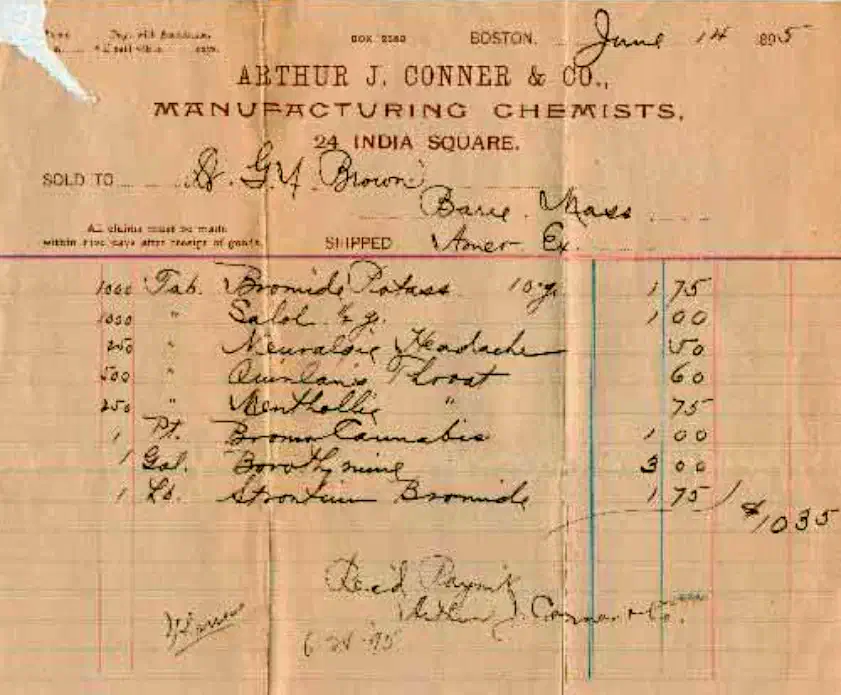 BOX 2580 BOSTON, June 14 1895
ARTHUR J. CONNER & CO.,
MANUFACTURING CHEMISTS,
24 INDIA SQUARE.
SOLD TO Dr. G. Y. Brown
Barre. Mass
All claims must be made
within five days after receipt of goods.
SHIPPED Amer. Ex.
1000 Tab. Bromide Potass. 10 g. 1 75
1000 " Salol 1 00
250 " Neuralgic Headache 50
500 " Quinlan's Throat 60
250 " Menthollic " 75
1 Pt. Bromo Cannabis 1 00
1 Gal. Borothymine 3 00
1 Lb. Strontium Bromide 1 75
$1035
Rec'd Paym't
Arthur J. Conner & Co.
6-24-95